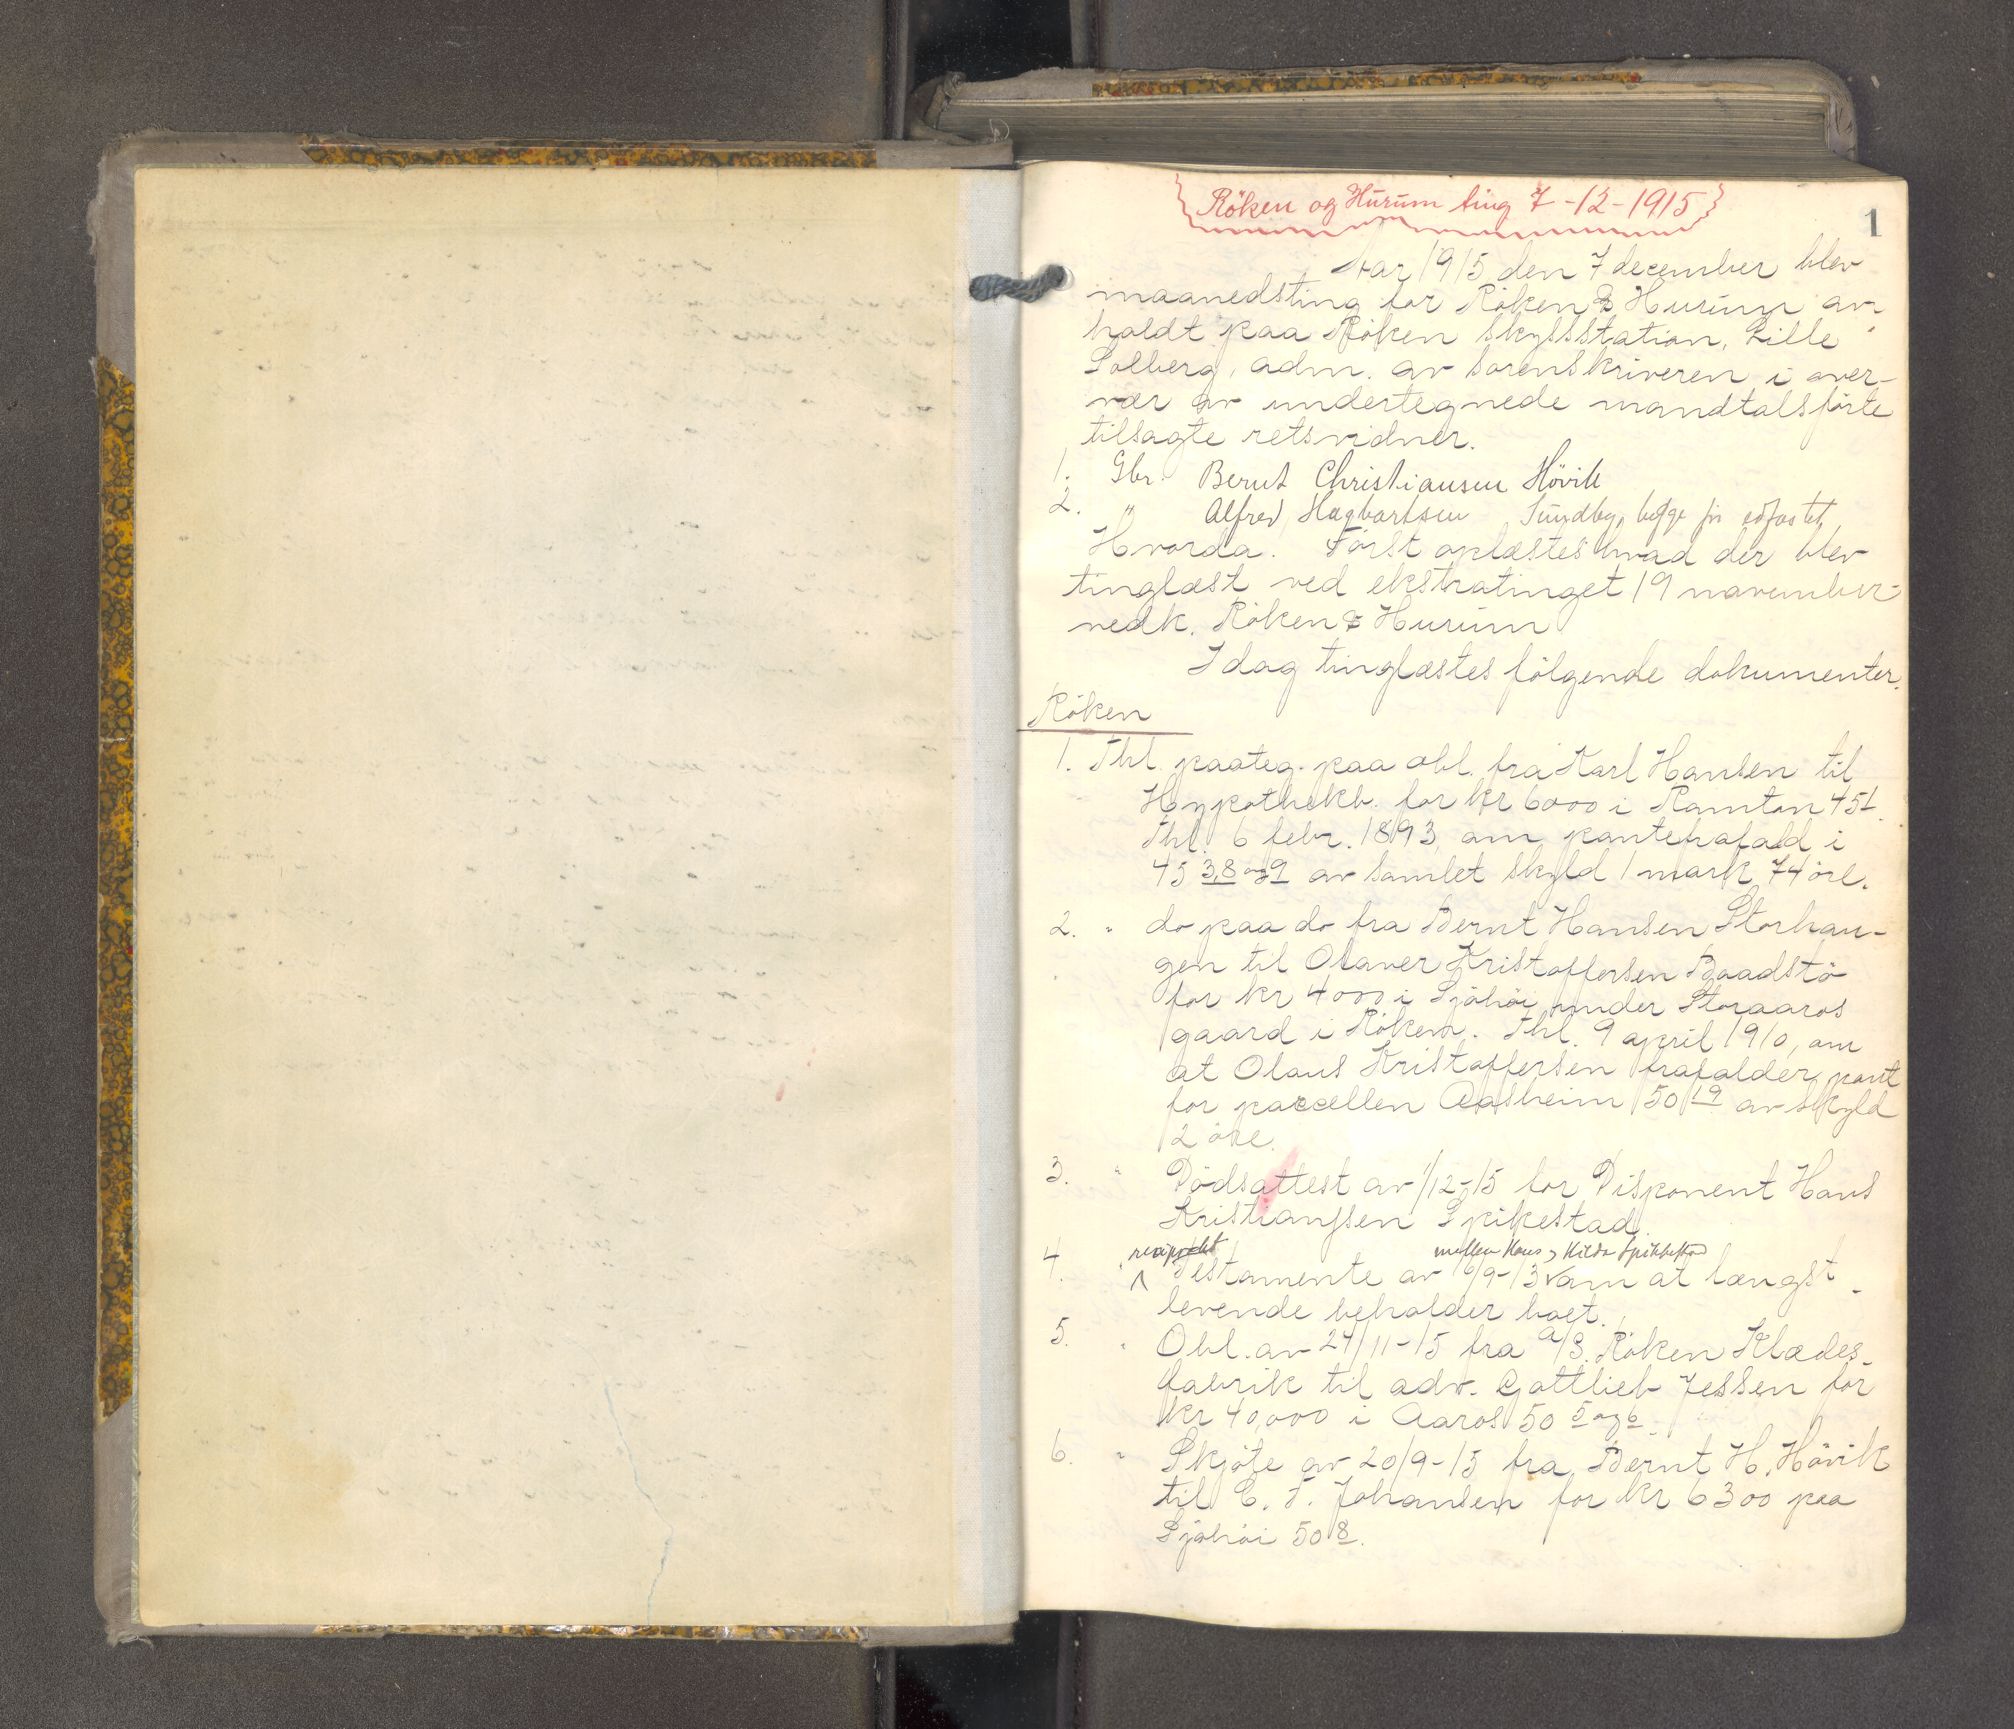 Röken og Hurum ting 7-12-1915
1
Aar 1915 den 7 december blev
maanedsting for Röken & Hurum av-
holdt paa Röken skysstation, Lille
Solberg, adm. av sorenskriveren i over-
vær av undertegnede mandtalsförte
tilsagte retsvidner.
1. Gbr. Bernt Christiansen Hövik
2. " Alfred Hagbartsen Sundby, begge før edfæstet
Hvorda. Först oplæstes hvad der blev
tinglæst ved ekstratinget 19 november
vedk. Röken & Hurum
Idag tinglæstes fölgende dokumenter.
Röken
1. Thl. paateg. paa obl. fra Karl Hansen til
Hypothekb. for kr 6000 i Ramton 45 1.
Thl. 6 febr. 1893, om pantefrafald i
45 3,8 og 9 av samlet skyld 1 mark 74 öre.
2. " do paa do fra Bernt Hansen Storhau-
gen til Olaver Kristoffersen Baadstö
for kr 4000 i Sjöhöi under Storaaros
gaard i Röken. Thl. 9 april 1910, om
at Olaus Kristoffersen frafalder pant
for parcellen Aasheim 50 19 av skyld
2 öre.
3. " Dödsattest av 1/12-15 for Disponent Hans
Kristianssen Spikestad.
reciprokt mellem Hans & Hilda Spikkestad
4. " Testamente av 6/9-13 om at længst
levende beholder boet.
5. " Obl. av 24/11-15 fra A/S. Röken Klædes-
fabrik til adv. Gottlieb Jessen for
kr 40,000 i Aaros 50 5 og 6.
6. " Skjöte av 20/9-15 fra Bernt H. Hövik
til E. F. Johansen for kr 6300 paa
Sjöhöi 50 8.